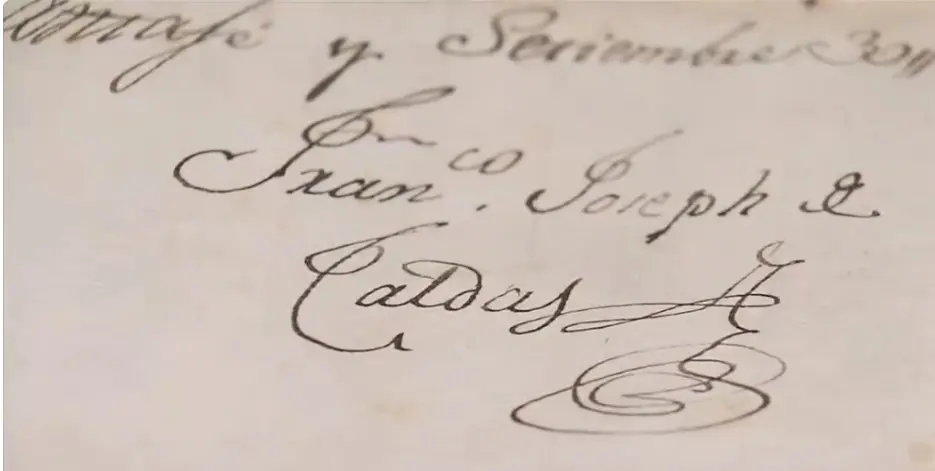 y Seciembre 30,,
Fran.co Joseph de
Caldas